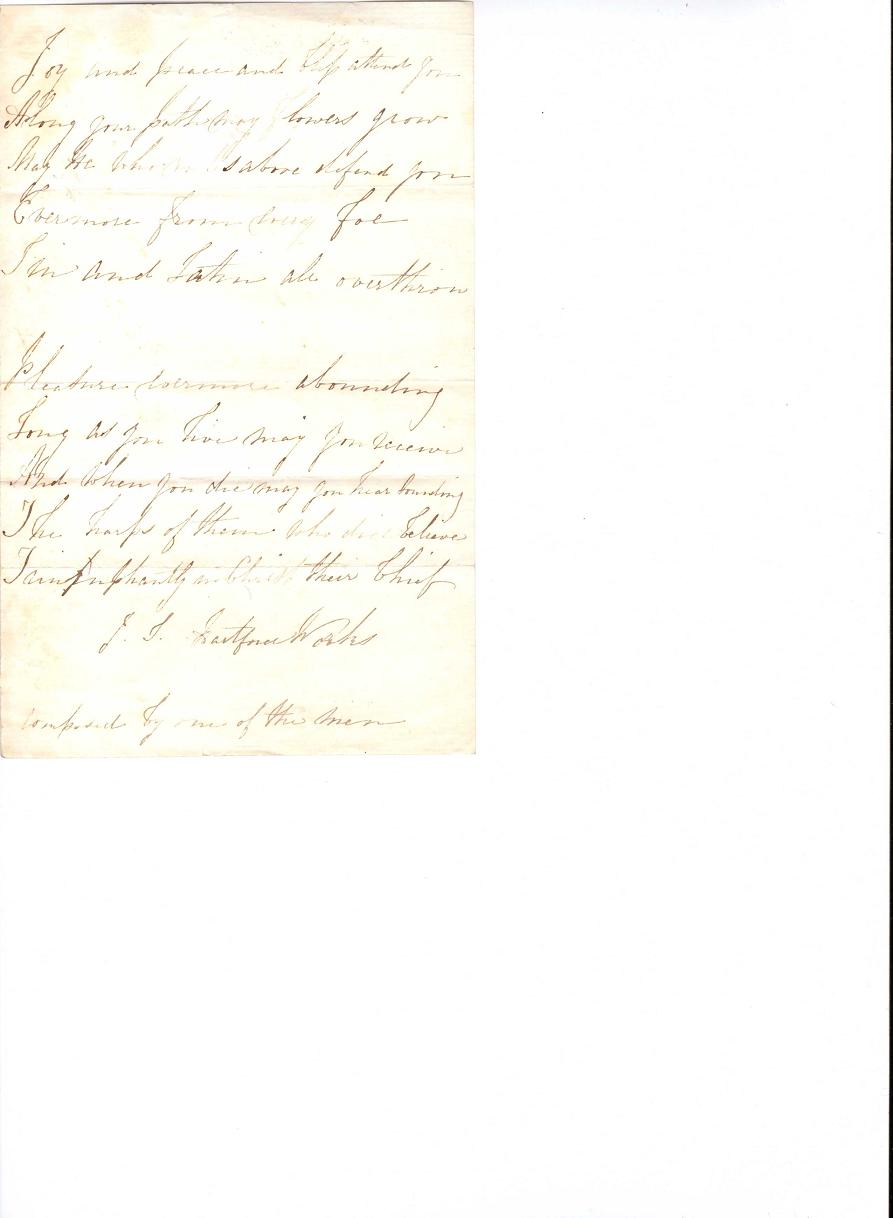 Joy and peace and bliss attend you
Along your path may flowers grow
May He who above defend you
Evermore from every foe
Sin and Satin all overthrow
Pleasure evermore abounding
Long as you live may you receive
And when you die may you hear sounding
The harps of them who did believe
Triumphantly in Christ their Chief
J. S. Works
composed by one of the men